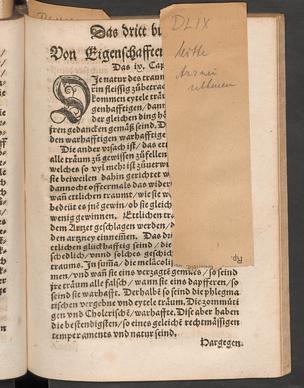 Das dritt bu
Von Eigenschafften
Das ix. Cap
Sje natur des traum
in fleissig zůbetrac
kommen eytele träu
genhafftigen/ dann
der gleichen ding hö
jren gedancken gemäß seind. D
den warhafftigen warhafftige
Die ander vrsach ist/ das et
alle träum zů gewissen zůfellen
welches so vyl mehr ist zůuerw
sie beiweilen dahin gerichtet w
dannocht offtermals das wider
wañ ettlichen traumt/ wie sie w
bedeüt es jnē gewin/ ob sie gleich
wenig gewinnen. Ettlichen tr
dem Artzet geschlagen werden/ d
den artzney einnemen. Das dri
ettlichen glückhafftig seind/ die
schedlich/ unnd solches geschich
traums. In summa/ die melācoli
men/ vnd wañ sie ens verzagts gemüts/ so seind
jre träum alle falsch/ wann sie ens dapfferen/ so
seind sie warhafft. Derhalbē so seind die phlegma
trischen vergebne vnd eytele träum. Die zornmüti
gen vnd Cholerischē/ warhafft. Dise aber haben
die bestendigsten/ so eines gleichē rechtmässigen
temperaments vnd natur seind.
Hargegen.
DLIX